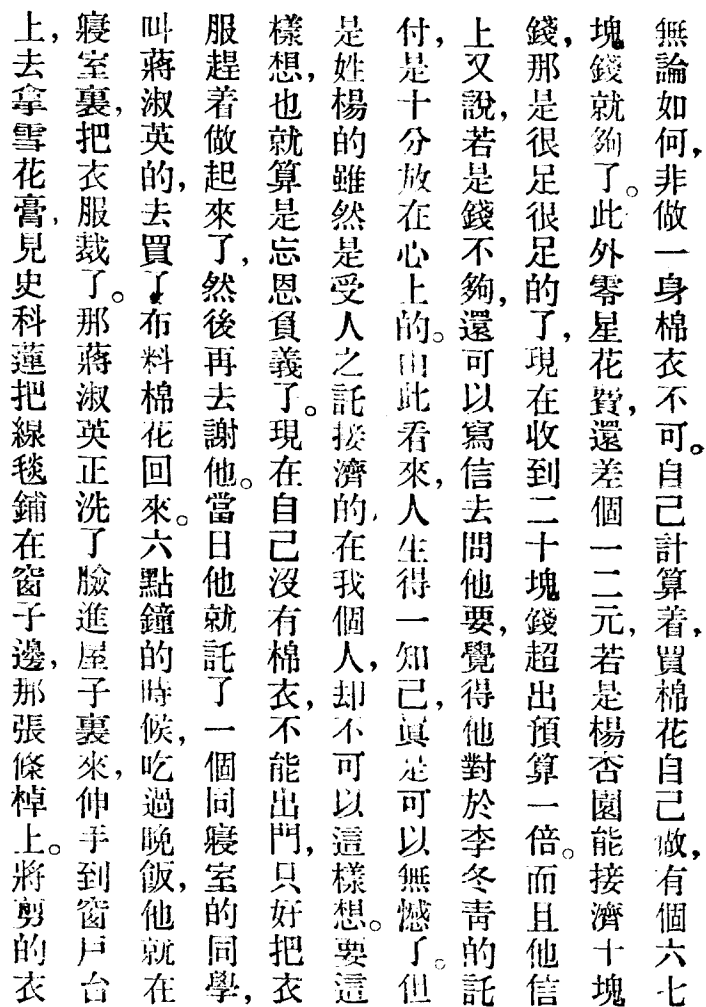 無論如何，非做一身棉衣不可。自己計算着，買棉花自己做，有個六七
塊錢就夠了。此外零星花費，還差個一二元，若是楊杏園能接濟十塊
錢，那是很足很足的了，現在收到二十塊錢超出預算一倍。而且他信
上又說，若是錢不夠，還可以寫信去問他要，覺得他對於李冬青的託
付，是十分放在心上的。由此看來，人生得一知己，眞是可以無憾了。但
是姓楊的雖然是受人之託接濟的，在我個人，却不可以這樣想。要這
樣想，也就算是忘恩負義了。現在自己沒有棉衣，不能出門，只好把衣
服趕着做起來了，然後再去謝他。當日他就託了一個同寢室的同學，
叫蔣淑英的，去買了布料棉花回來。六點鐘的時候，吃過晚飯，他就在
寢室裏，把衣服裁了。那蔣淑英正洗了臉進屋子裏來，伸手到窗戶台
上，去拿雪花膏，見史科蓮把線毯鋪在窗子邊，那張條棹上。將剪的衣